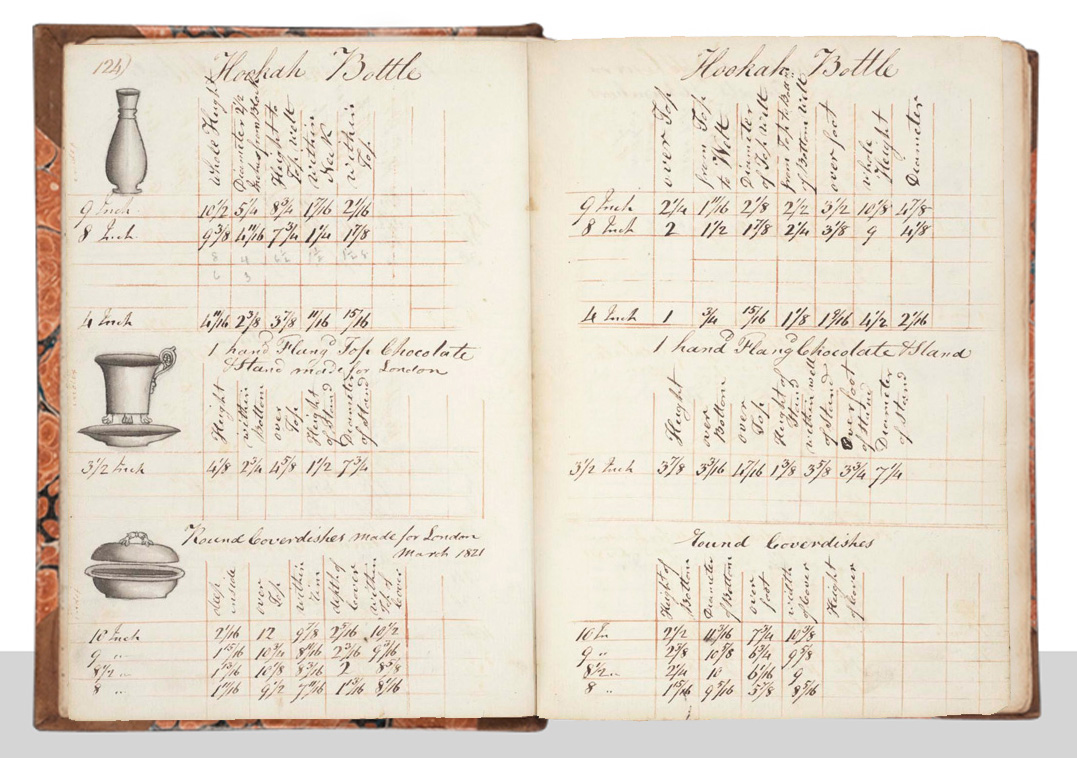 124)
Hookah Bottle
Whole Height
Diameter 2 1/2
Inches from Black
Height to
Top Welt
within
Neck
within
Top
9 Inch 10 1/2 5 1/4 8 3/4 1 7/16 2 1/16
8 Inch 9 3/8 4 11/16 7 3/4 1 1/4 1 7/8
8 4 6 1/2
6 3
4 Inch 4 11/16 2 3/8 3 7/8 11/16 15/16
1 hand Flang Top Chocolate
& Stand made for London
Height
within
Bottom
over
Top
Height
of Stand
Diameter
of Stand
3 1/2 Inch 4 1/8 2 3/4 4 5/8 1 1/2 7 3/4
Round Coverdishes made for London
March 1821
deep
inside
over
Top
within
depth of
Cover
within
Top of
Cover
10 Inch 2 1/16 12 9 7/8 2 5/16 10 1/2
9 " 1 15/16 10 3/4 8 11/16 2 3/16 9 3/16
8 1/2 " 1 13/16 10 1/8 8 3/16 2 8 5/8
8 " 1 11/16 9 1/2 7 11/16 1 13/16 8 1/16
Hookah Bottle
over Top
from Top
to Welt
Diameter
of Top Welt
from Top to Bottom
of Bottom Welt
over foot
whole
Height
Diameter
9 Inch 2 1/4 1 11/16 2 1/8 2 1/2 3 1/2 10 1/8 4 7/8
8 Inch 2 1 1/2 1 7/8 2 1/4 3 1/8 9 4 1/8
4 Inch 1 3/4 15/16 1 1/8 1 9/16 4 1/2 2 1/16
1 hand Flang Chocolate & Stand
Height
over
Bottom
over
Top
Height of
Stand
within well
of Stand
Over foot
of Stand
Diameter
of Stand
3 1/2 Inch 3 7/8 3 3/16 4 7/16 1 3/8 3 5/8 3 3/4 7 1/4
Round Coverdishes
Height of
Bottom
Diameter
of Bottom
over
foot
width
of Cover
Height
of Cover
10 In 2 1/2 11 3/16 7 3/4 10 1/8
9 " 2 3/8 10 5/8 6 3/4 9 5/8
8 1/2 " 2 1/4 10 6 1/16 9
8 " 1 15/16 9 5/16 5 7/8 8 5/16